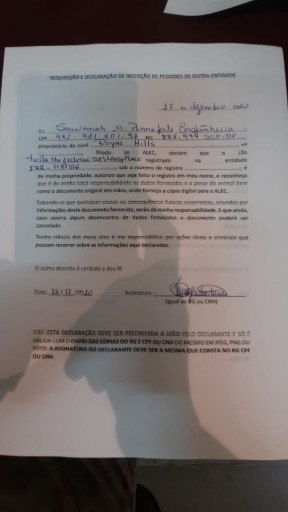 REQUISIÇÃO E DECLARAÇÃO DE INSERÇÃO DE PEDIGREE DE OUTRA ENTIDADE
17 de dezembro 2020
Eu
CPF SSP-DF
proprietário do canil Royal Hills
filiado ao ALKC, declaro que o cão
registrado na entidade
sob o número de registro e
de minha propriedade, autorizo que seja feito o registro em meu nome, e reconheço
que é de minha total responsabilidade os dados fornecidos e a posse do animal bem
como o documento original em mãos, onde forneço a cópia digital para o ALKC.
Sabendo-se que quaisquer causas ou consequências futuras recorrentes, oriundas por
informações deste documento fornecido, serão de minha responsabilidade. E que ainda,
caso ocorra algum desencontro de dados fornecidos o documento poderá ser
cancelado.
Tenho ciência dos meus atos e me responsabilizo por ações cíveis e criminais que
possam recorrer sobre as informações aqui declaradas.
O acima descrito é verdade e dou fé
Data: Assinatura:
(Igual do RG ou CNH)
OBS: ESTA DECLARAÇÃO DEVE SER PREENCHIDA A MÃO PELO DECLARANTE E SÓ É
VÁLIDA COM O ENVIO DAS CÓPIAS DO RG E CPF OU CNH DO MESMO EM JPEG, PNG OU
A ASSINATURA DO DECLARANTE DEVE SER A MESMA QUE CONSTA NO RG CPF
OU CNH.